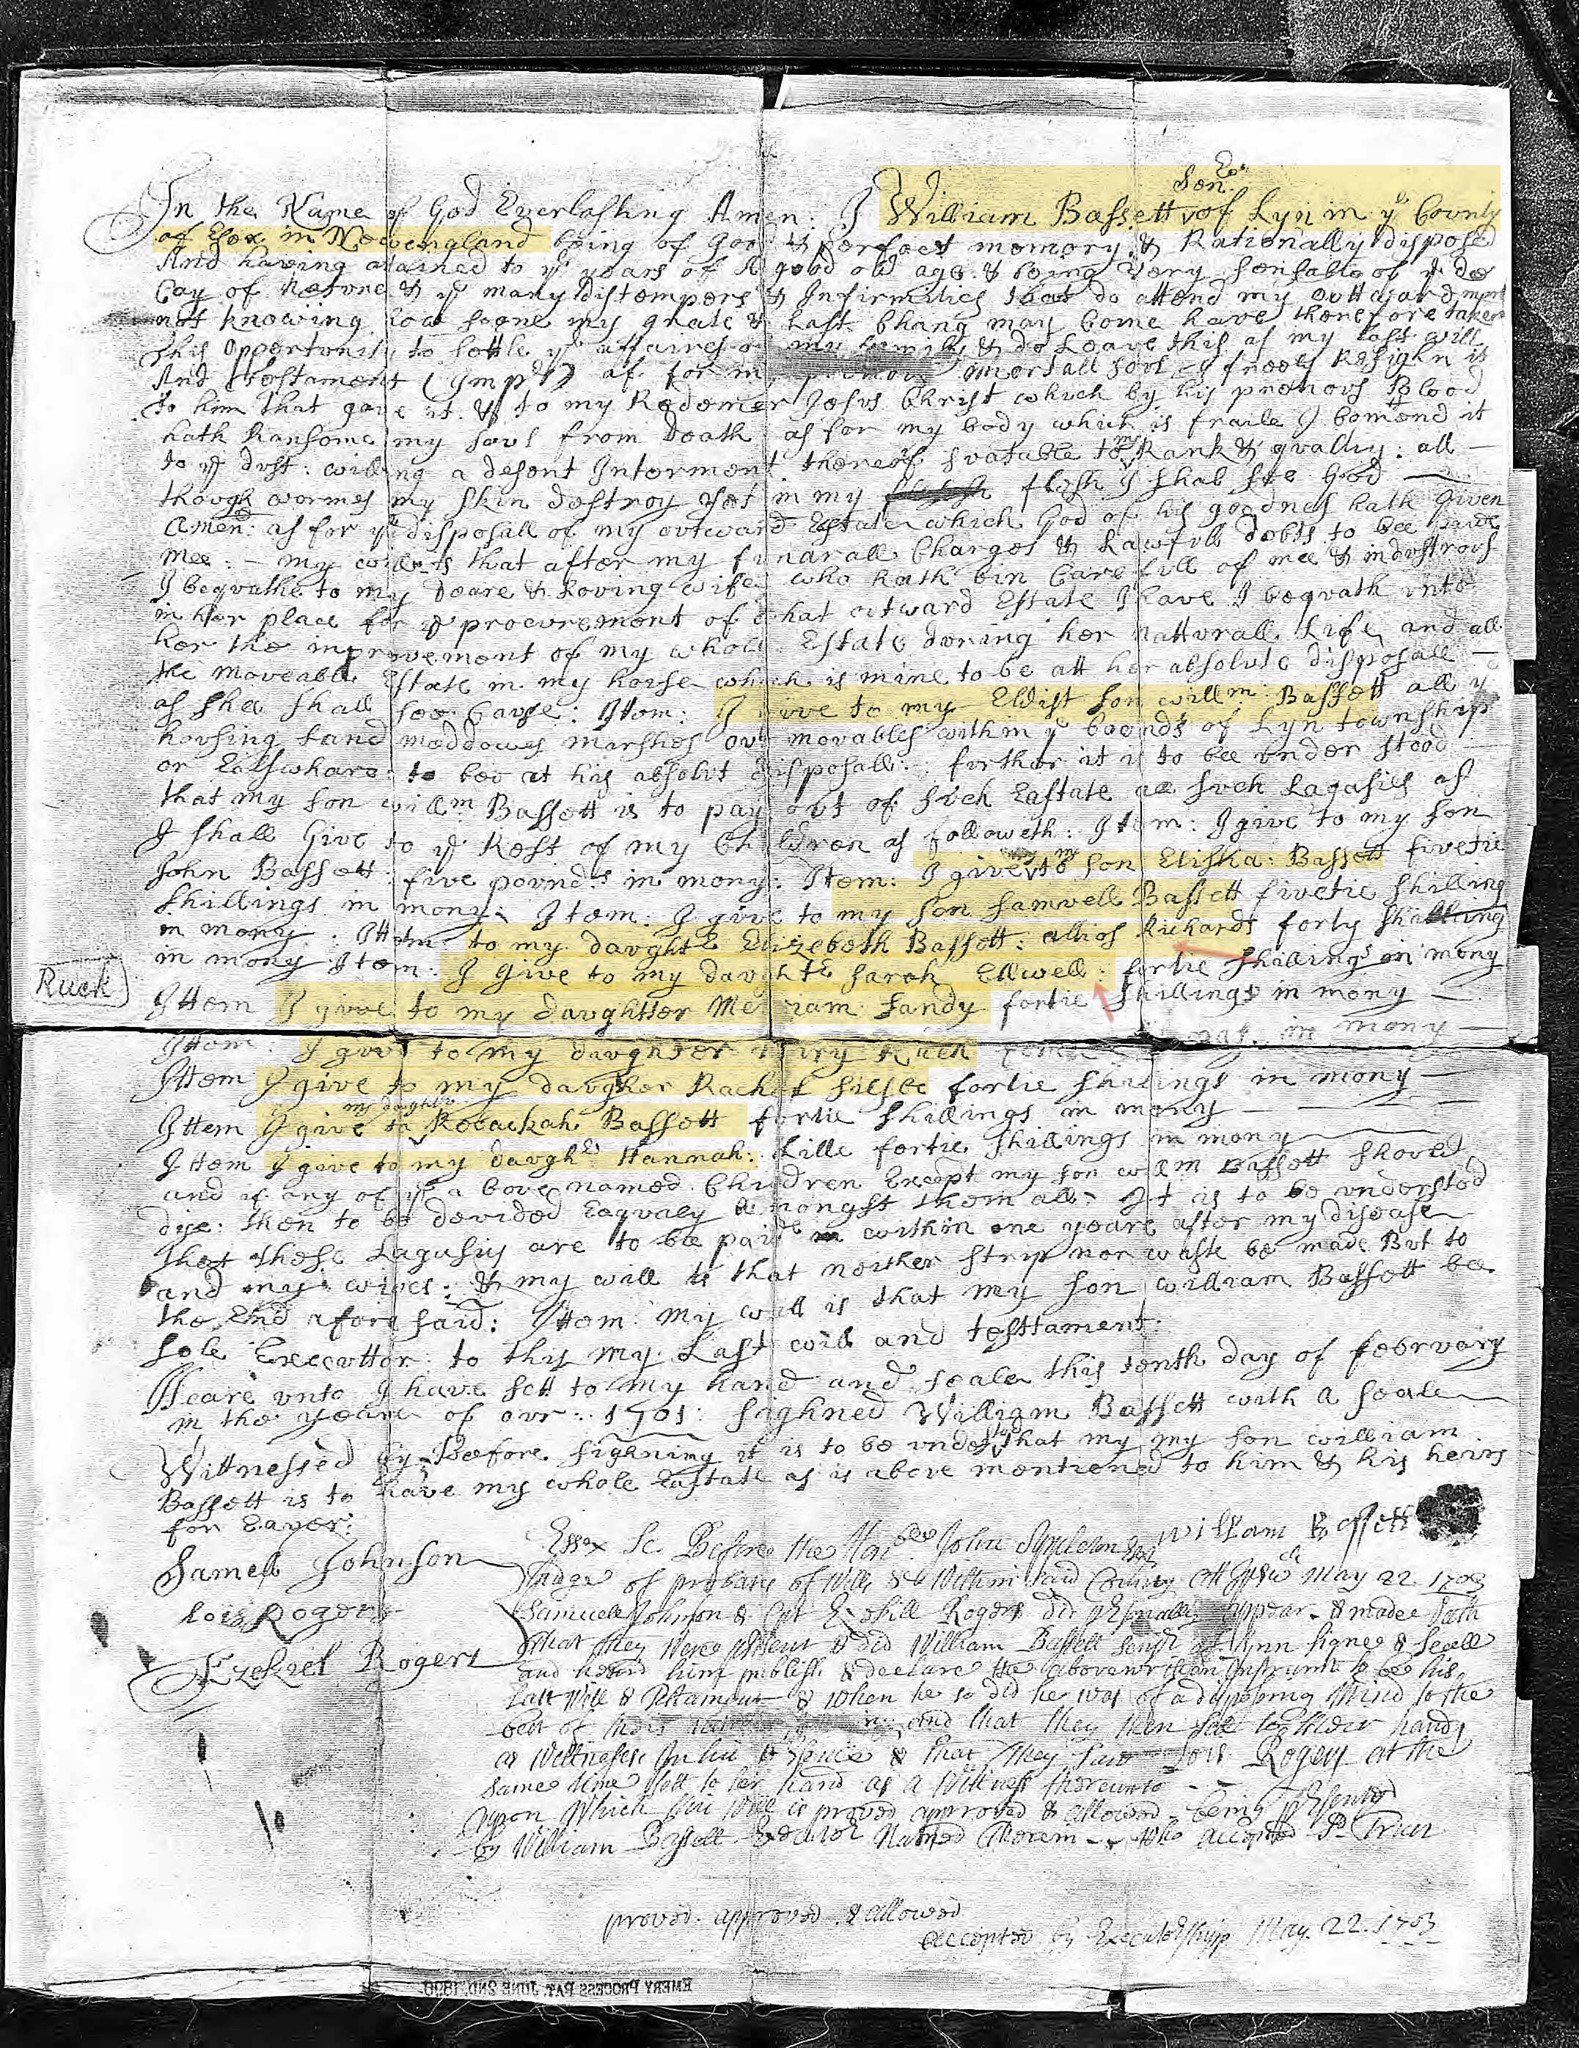 Senr
In the Name of God Everlasting Amen: I William Bassett of Lyn in ye County
of Esex in Newengland being of Good & perfect memory & Rationally disposed
And having atained to ye years of A good old age & being very sensable of ye de
Cay of Nature & ye many distempers & Infirmities that do attend my outtward
not knowing how soone my grate & Last Chang may Come have therefore taken
this Opportunity to settle ye affaires of my family & do Leave this as my Last will
And Testament (Impr) as for my imortall soul I freely Resighn it
to him that gave it & to my Redemer Jesus Christ which by his pretious Blood
hath Ransome my soul from Death as for my body which is fraile I Comend it
to ye dust: willing a desent Interment thereof sutable to my Rank & quallity: all
though wormes my skin destroy yet in my flesh I shall see God
Amen: as for ye disposall of my outward Estate which God of his goodnes hath given
mee: my will is that after my funarall Charges & Lawfull debts to bee paide
I bequathe to my Deare & Loving wife who hath bin Care full of mee & industrous
in her place for ye procurement of what outward Estate I have I bequath unto
her the improvement of my whole Estate during her natturall Life and all
the moveable Estate in my house which is mine to be att her absolute disposall
as shee shall see Cause: Item: I give to my Eldist son willm: Bassett all ye
housing Land meddowes marshes our movables within ye bounds of Lyn township
or Ellswhare: to bee at his absolut disposall: further it is to bee under stood
that my son willm Bassett is to pay out of such Eastate all such Lagasies as
I shall Give to ye Rest of my Children as followeth: Item: I give to my son
John Bassett: five pounds in mony: Item: I give to my son Elisha: Bassett fivetie
shillings in mony: Item: I give to my son samuell Bassett fivetie shilling
in mony: Ittem to my daughtr Elizebeth Bassett: allios Richards forty shilling
in mony Item: I Give to my daughtr sarah Ellwell: fortie shillings in mony
Ruck
Ittem I give to my daughtter Meriam sandy fortie shillings in mony
Ittem: I give to my daughter Mary Ruck in mony
Ittem I give to my daughter Rachel silsbe fortie shillings in mony
my daughter
Ittem I give to Rebackah Bassett fortie shillings in mony
Ittem I give to my daughtr Hannah: Lille fortie shillings in mony
and if any of ye a bove named Children Except my son willm Bassett should
dye: then to be devided Eaqualy amongst them all- It is to be understod
that these Lagusiys are to be paide within one yeare after my disease
and my wives: & my will is that neither strip nor waste be made But to
the End afore said: Ittem: my will is that my son william Bassett be
sole Executtor to thys my Last will and testtament:
Heare unto I have sett to my hand and seale this tenth day of february
in the yeare of our: 1701: sighned William Bassett with a seale
Wittnessed by: Before sighning it is to be understod that my my son william
Bassett is to have my whole Eastate as is above mentioned to him & his heirs
for Eaver:
William Bassett
Samell Johnson
Lois Rogers
Ezekiel Rogers
Essex Sc. Before the Honble John Appleton Esq
Judge of probate of Wills &c Within said County att Ipswch May 22 1703
Samuell Johnson & Ezekill Rogers did psonally appear & made Oath
that they were present & did William Bassett Senr of Lynn signe & seale
and heard him publish & declare the abovewritten Instrumt to be his
Last Will & Testament & When he so did he was of a disposing Mind to the
best of their and that they then set to their hands
as Wittnesses In his psence & that they saw Lois Rogers at the
same time sett to her hand as a Wittness thereunto
Upon Which this Will is proved approved & allowed being psented
by William Bassett Executor Named therein who accepted
proved. approved & allowed
accepted by Executorship May. 22. 1703
EMERY PROCESS PAT. JUNE 2ND, 1896.